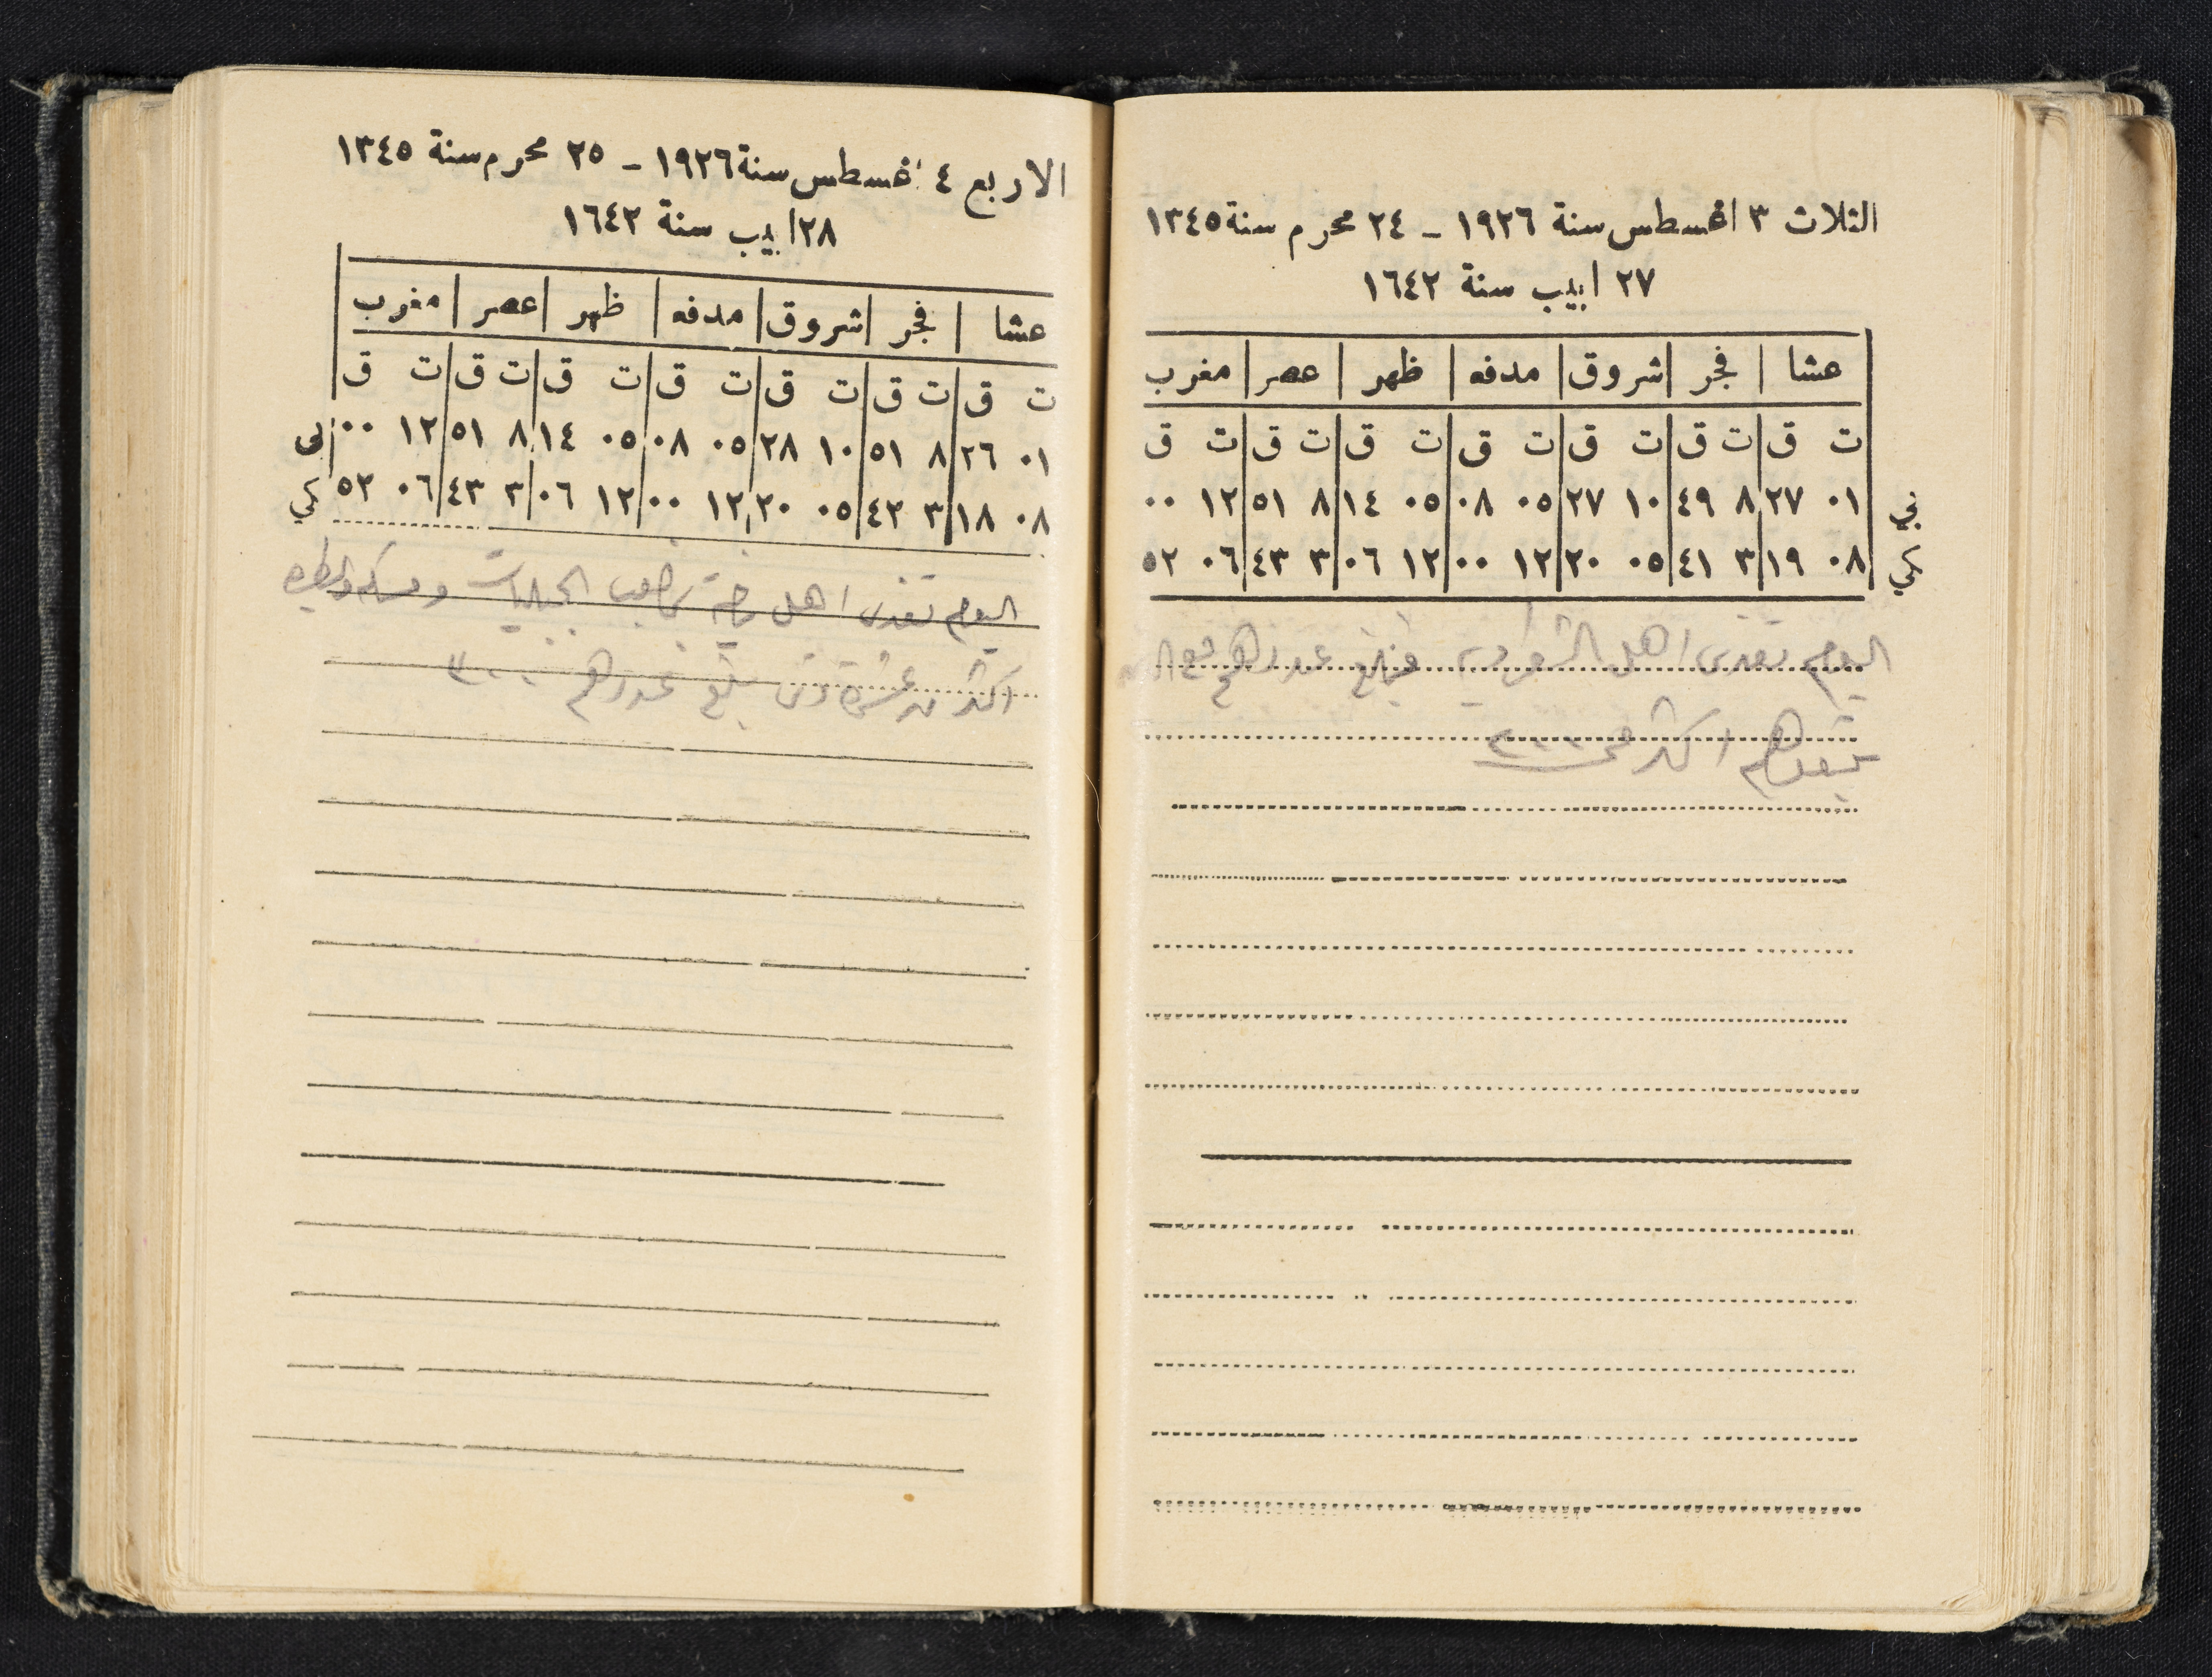 الثلاث ٣ اغسطس سنة ١٩٢٦ – ٢٤ محرم سنة ١٣٤٥
٢٧ ابيب سنة ١٦٤٢
عشا | فجر | شروق | مدفه | ظهر | عصر | مغرب
ت ق | ت ق | ت ق | ت ق | ت ق | ت ق | ت ق
٠١ ٢٧ | ٨ ٤٩ | ١٠ ٢٧ | ٠٥ ٠٨ | ٠٥ ١٤ | ٨ ٥١ | ١٢ ٠٠
٠٨ ١٩ | ٣ ٤١ | ٠٥ ٢٠ | ١٢ ٠٠ | ١٢ ٠٦ | ٣ ٤٣ | ٠٦ ٥٢
اليوم تغدى اهل عددهم مع
اكثر من
الاربع ٤ اغسطس سنة ١٩٢٦ – ٢٥ محرم سنة ١٣٤٥
٢٨ ابيب سنة ١٦٤٢
عشا | فجر | شروق | مدفه | ظهر | عصر | مغرب
ت ق | ت ق | ت ق | ت ق | ت ق | ت ق | ت ق
٠١ ٢٦ | ٨ ٥١ | ١٠ ٢٨ | ٠٥ ٠٨ | ٠٥ ١٤ | ٨ ٥١ | ١٢ ٠٠
٠٨ ١٨ | ٣ ٤٣ | ٠٥ ٢٠ | ١٢ ٠٠ | ١٢ ٠٦ | ٣ ٤٣ | ٠٦ ٥٢
اليوم تغدى اهل
اكثر من عشرة بلغ عددهم